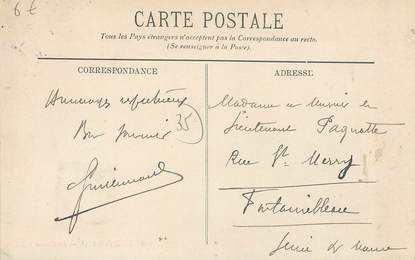 6 €
CARTE POSTALE
Tous les Pays étrangers n'acceptent pas la Correspondance au recto.
(Se renseigner à la Poste).
CORRESPONDANCE
ADRESSE
Hommages respectueux
35
Madame
Lieutenant Paquotte
Rue St Merry
Fontainebleau
Seine et Marne